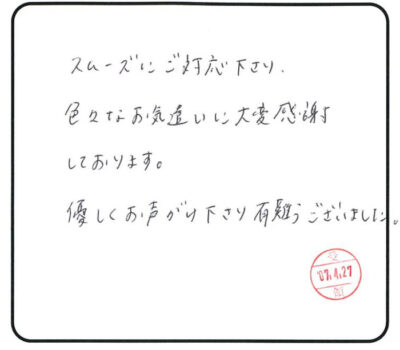 スムーズにご対応下さり、
色々なお気遣いに大変感謝
しております。
優しくお声がけ下さり有難うございました。
'07.4.27